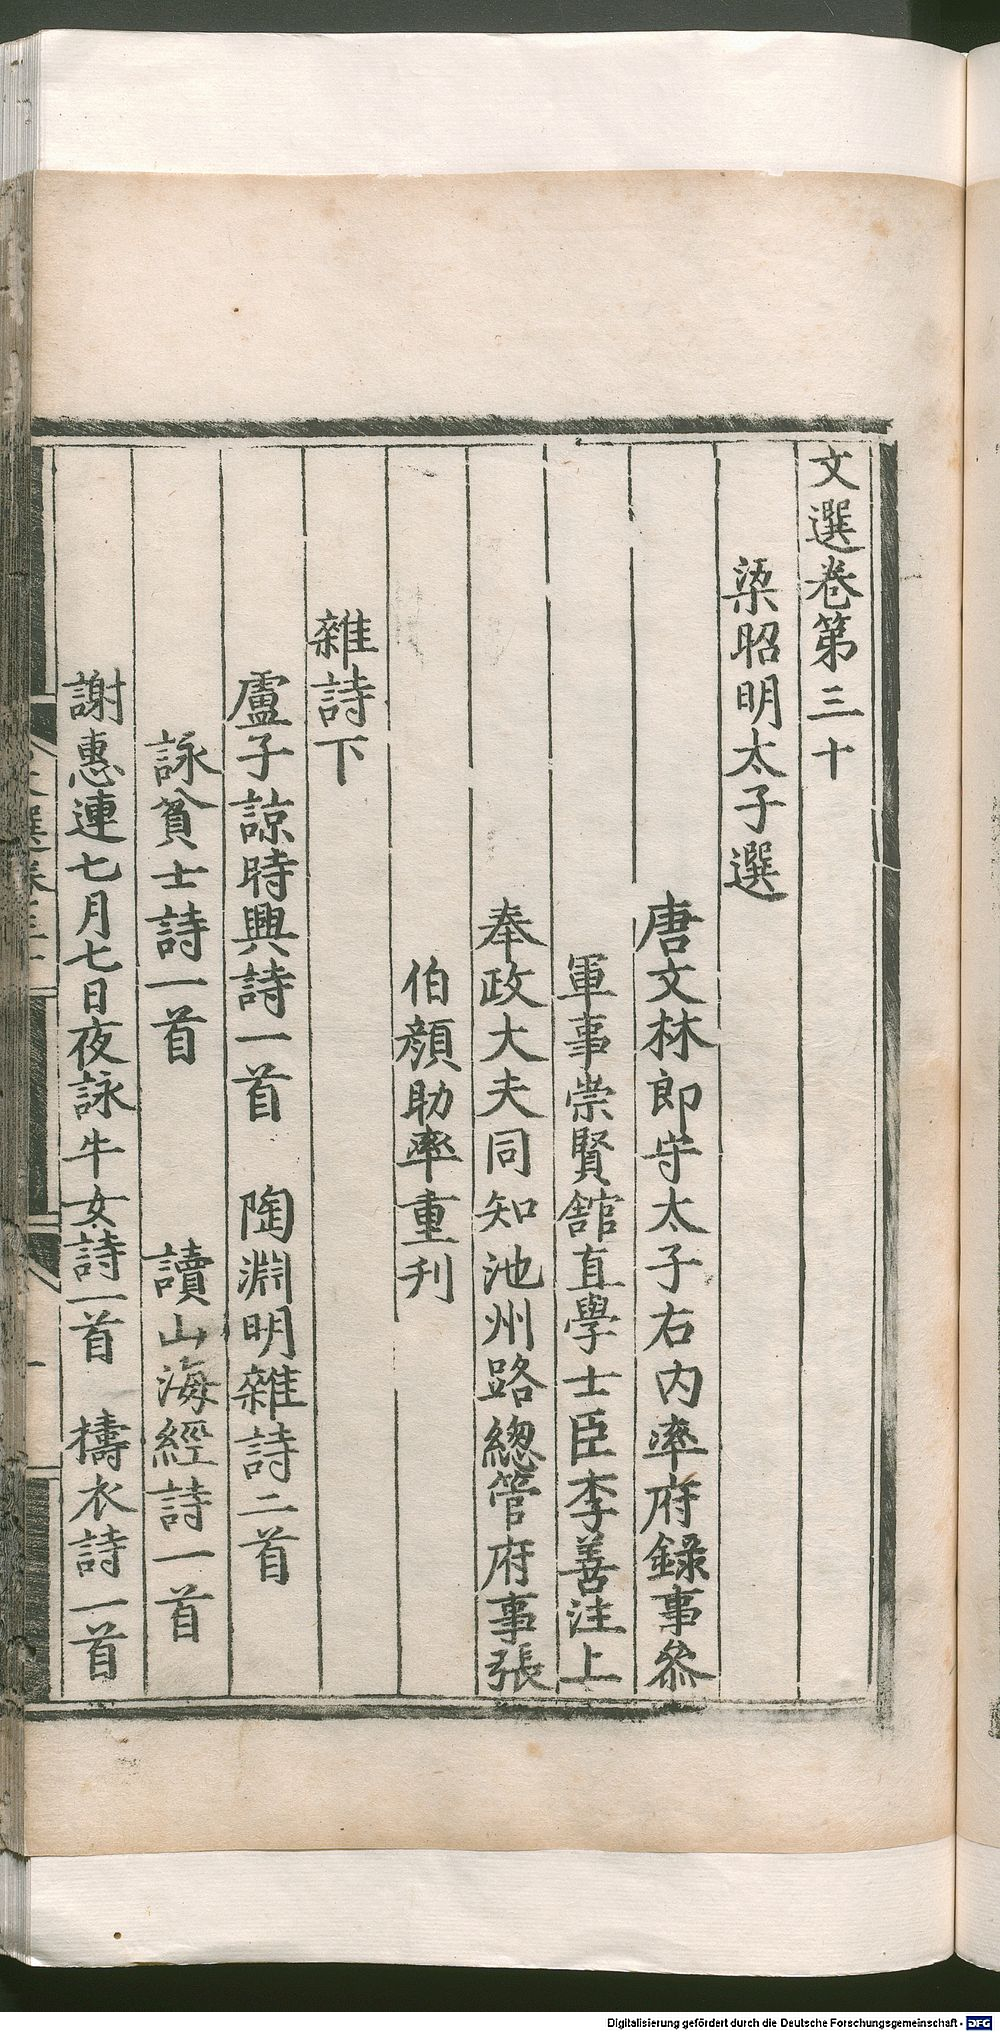 文選卷第三十
梁昭明太子選
唐文林郎守太子右內率府錄事參
軍事崇賢館直學士臣李善注上
奉政大夫同知池州路總管府事張
伯顔助率重刊
雜詩下
盧子諒時興詩一首　陶淵明雜詩二首
詠貧士詩一首　讀山海經詩一首
謝惠連七月七日夜詠牛女詩一首　擣衣詩一首
文選卷三十
Digitalisierung gefördert durch die Deutsche Forschungsgemeinschaft - DFG